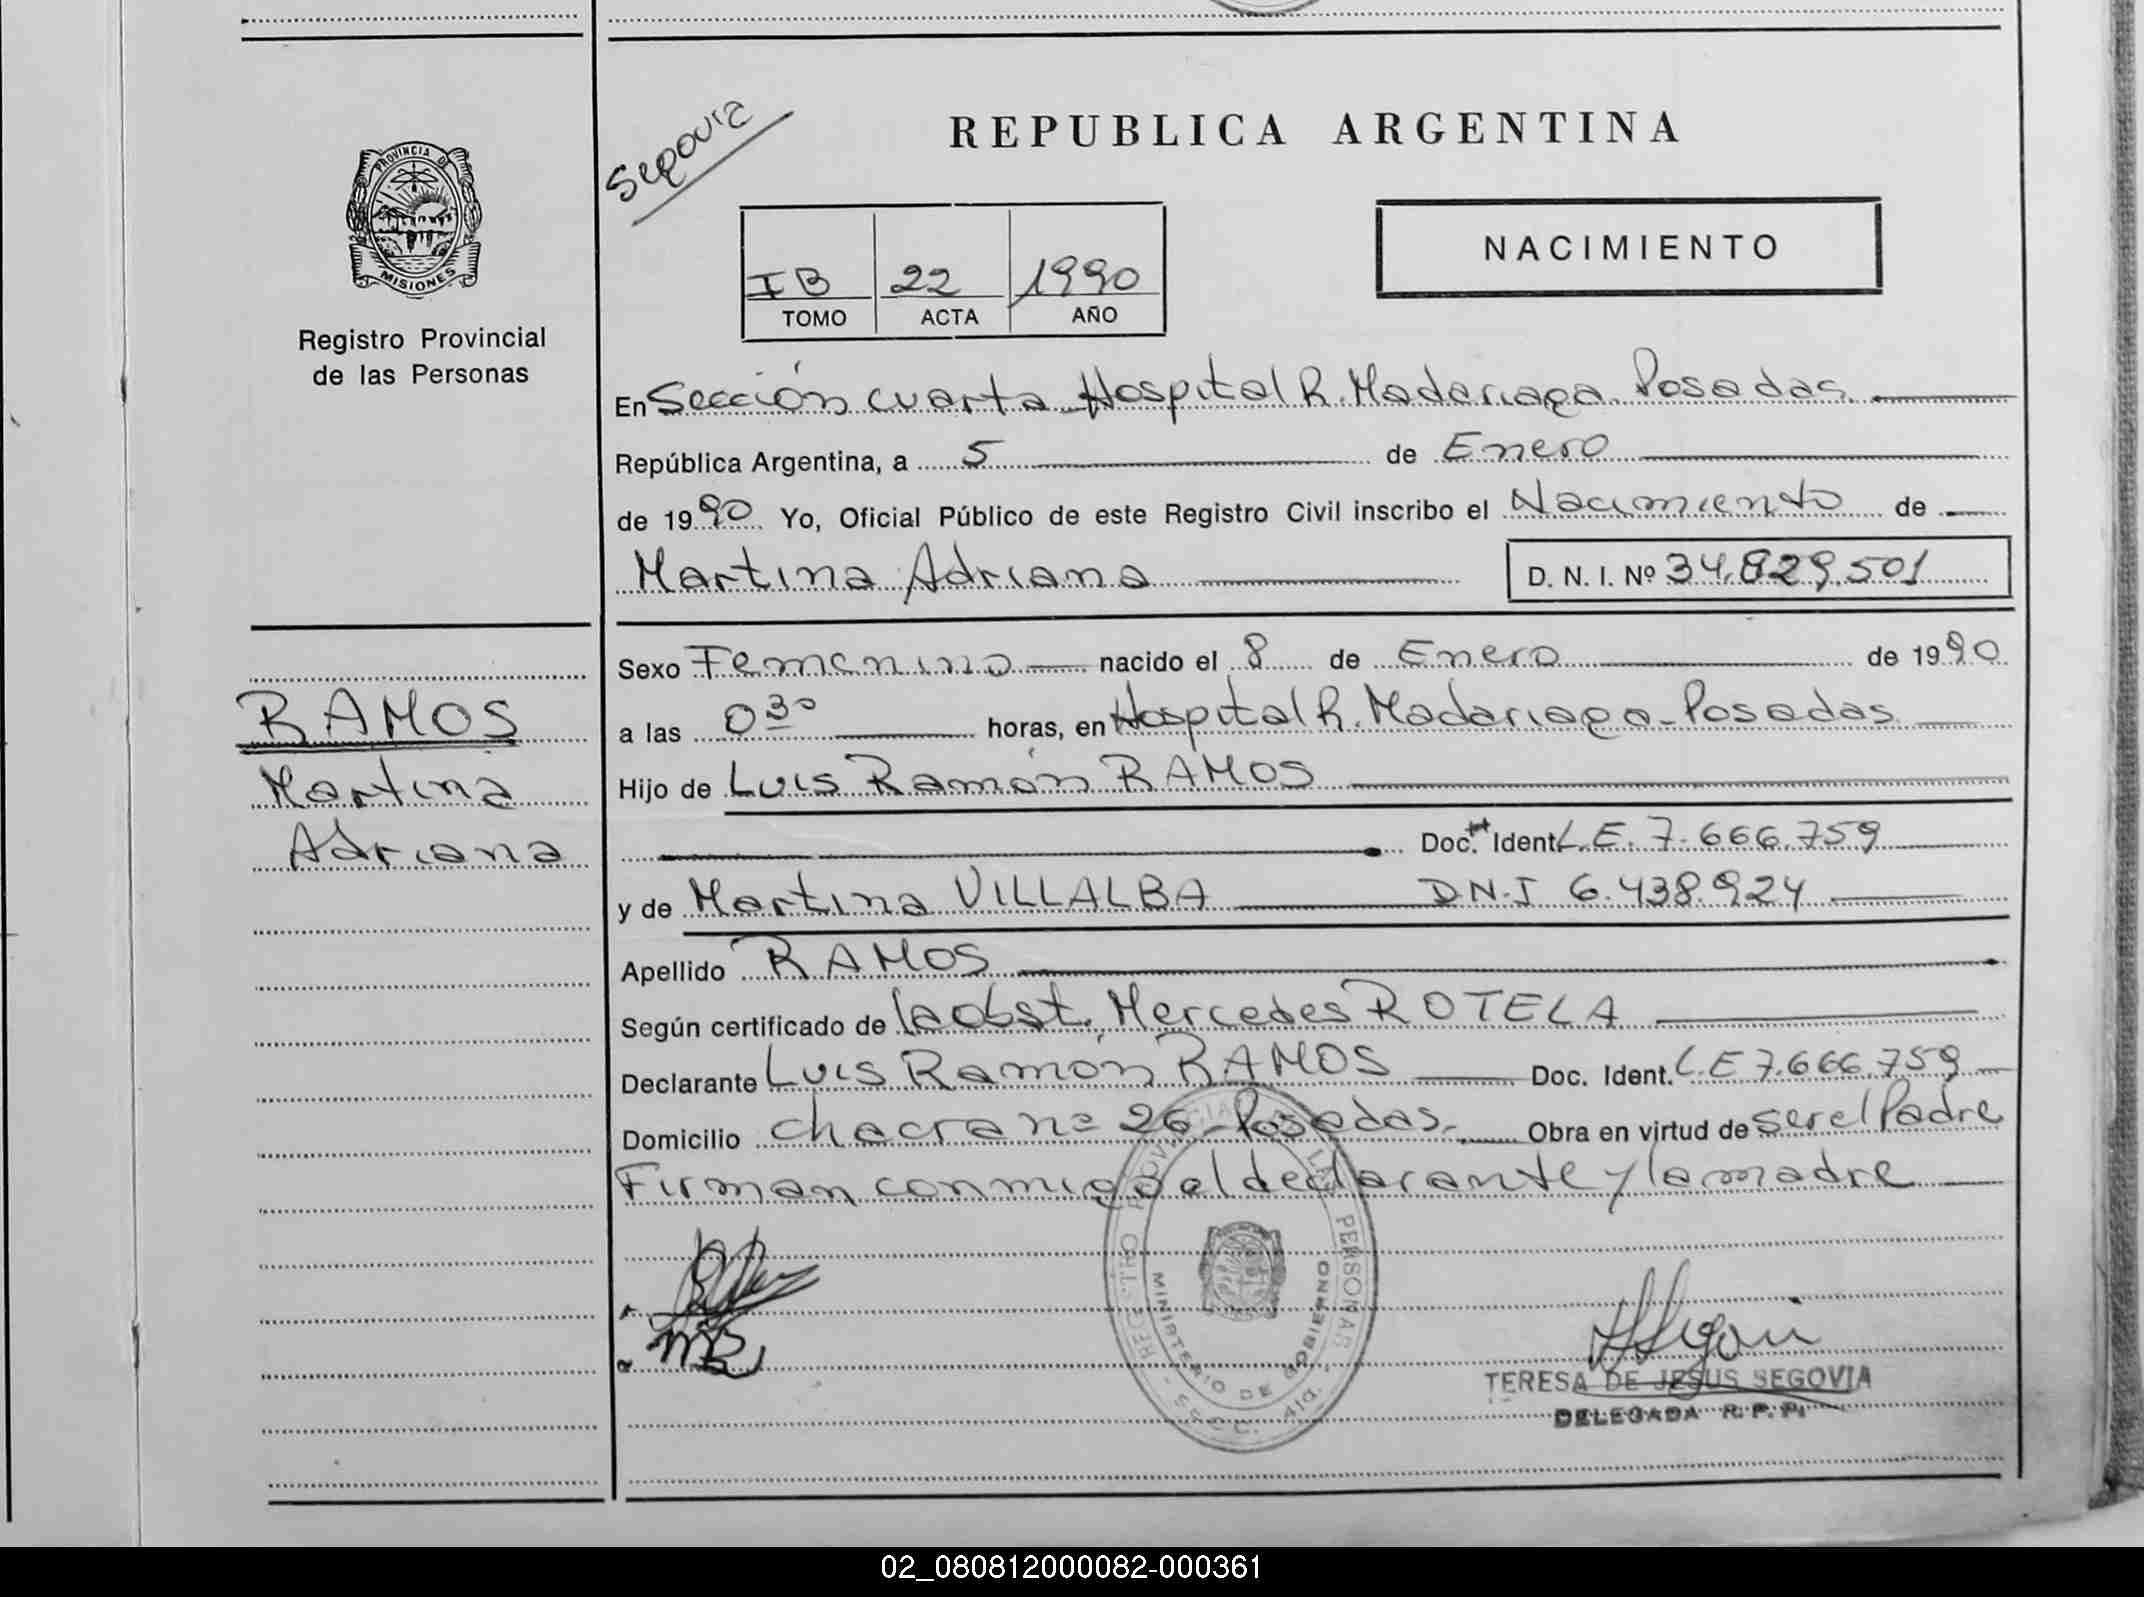 REPUBLICA ARGENTINA
Segovia
PROVINCIA DE
MISIONES
Registro Provincial
de las Personas
NACIMIENTO
I B 22 1990
TOMO ACTA AÑO
En Sección cuarta Hospital R. Madariaga Posadas
República Argentina, a 5 de Enero
de 1990 Yo, Oficial Público de este Registro Civil inscribo el Nacimiento de
Martina Adriana D. N. I. Nº 34.829.501
Sexo Femenino nacido el 8 de Enero de 1990
RAMOS
Martina
Adriana
a las 0 30 horas, en Hospital R. Madariaga - Posadas
Hijo de Luis Ramón RAMOS
Doc. Ident. L.E. 7.666.759
y de Martina VILLALBA D.N.I 6.438.924
Apellido RAMOS
Según certificado de la obst. Mercedes ROTELA
Declarante Luis Ramón RAMOS Doc. Ident. L.E 7.666.759
Domicilio chacra nº 26 - Posadas - Obra en virtud de ser el Padre
Firman conmigo el declarante y la madre
REGISTRO PROVINCIAL DE LAS PERSONAS
MINISTERIO DE GOBIERNO
TERESA DE JESUS SEGOVIA
DELEGADA R. P. P.
02_080812000082-000361